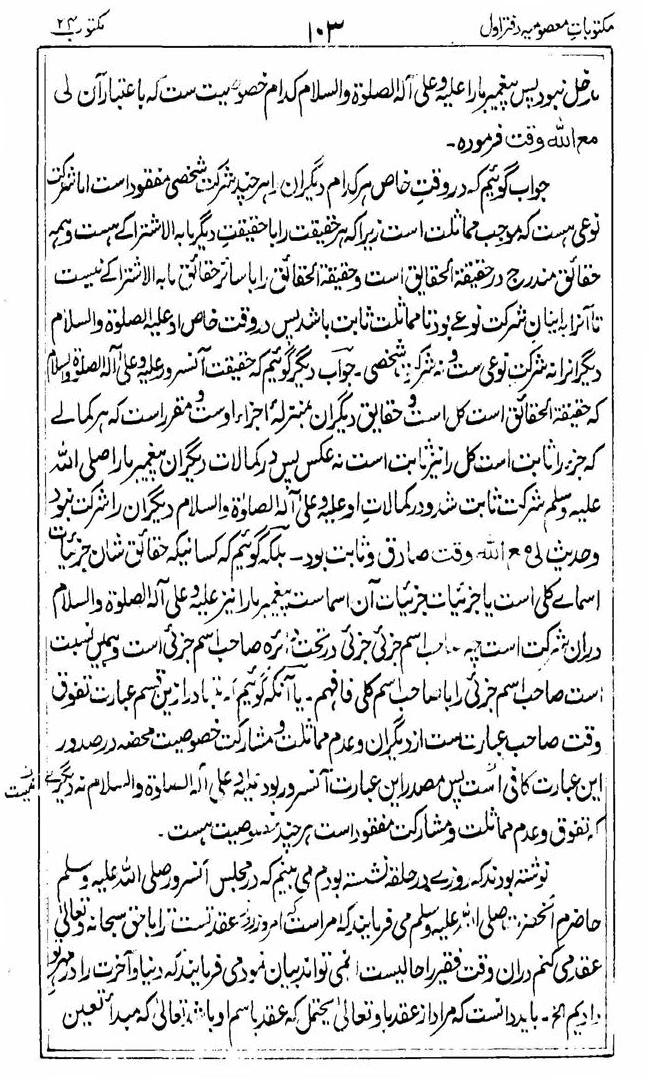 مکتوباتِ معصومیہ دفتر اول ۱۰۳ مکتوب ۲۴
مدخل نبود پس پیغمبر ما را علیہ و علیٰ آلہ الصلوٰۃ والسلام کدام خصوصیت ست کہ باعتبار آن لی
مع اللہ وقت فرمودہ۔
جواب گوئیم کہ در وقتِ خاص ہر کدام دیگران را ہر چند شرکت شخصی مفقود است اما شرکت
نوعی ہست کہ موجب مماثلت است زیرا کہ ہر حقیقت را با حقیقتِ دیگر مابہ الاشتراکے ہست و ہمہ
حقائق مندرج در حقیقۃ الحقایق است و حقیقۃ الحقائق را با سائر حقائق مابہ الاشتراکے نیست
تا آنرا باینان شرکت نوعے بود تا مماثلت ثابت باشد پس در وقت خاص او علیہ الصلوٰۃ والسلام
دیگرانرا نہ شرکتِ نوعی ست و نہ شرکتِ شخصی۔ جواب دیگر گوئیم کہ حقیقت آنسرور علیہ و علیٰ آلہ الصلوٰۃ والسلام
کہ حقیقۃ الحقائق است کل است و حقایق دیگران بمنزلۂ اجزاء اوست و مقرر است کہ ہر کمالے
کہ جزء را ثابت است کل را نیز ثابت است نہ عکس پس در کمالات دیگران پیغمبر ما را صلی اللہ
علیہ وسلم شرکت ثابت شد و در کمالاتِ او علیہ و علیٰ آلہ الصلوٰۃ والسلام دیگران را شرکت نبود
و حدیث لی مع اللہ وقت صادق و ثابت بود۔ بلکہ گوئیم کہ کسانیکہ حقائق شان جزئیات
اسماے کلی است یا جزئیات جزئیات آن اسماست پیغمبر ما را نیز علیہ و علیٰ آلہ الصلوٰۃ والسلام
در ان شرکت است چہ صاحب اسم جزئی جزئی در تحت دائرہ صاحب اسم جزئی است و ہمین نسبت
است صاحب اسم جزئی را با صاحب اسم کلی فافہم۔ یا آنکہ گوئیم کہ متبادر ازین قسم عبارت تفوق
وقت صاحب عبارت ست از دیگران و عدم مماثلت و مشارکت خصوصیت محضہ در صدور
این عبارت کافی است پس مصدر این عبارت آنسرور بود علیہ و علیٰ آلہ الصلوٰۃ والسلام نہ دیگرے
کہ تفوق و عدم مماثلت و مشارکت مفقود است ہر چند خصوصیت ہست۔
نوشتہ بودند کہ روزے در حلقہ نشستہ بودم می بینم کہ در مجلس آنسرور صلی اللہ علیہ وسلم
حاضرم آنحضرت صلی اللہ علیہ وسلم می فرمایند کہ امر است کہ امروز عقد تست را با حق سبحانہ و تعالیٰ
عقد می کنم در ان وقت فقیر را حالیست نمی تواند بیان نمود می فرمایند کہ دنیا و آخرت را در مہر تو
دادیم الخ۔ باید دانست کہ مراد از عقد با و تعالیٰ یحتمل کہ عقد باسم او باشد تعالیٰ کہ مبدأ تعین